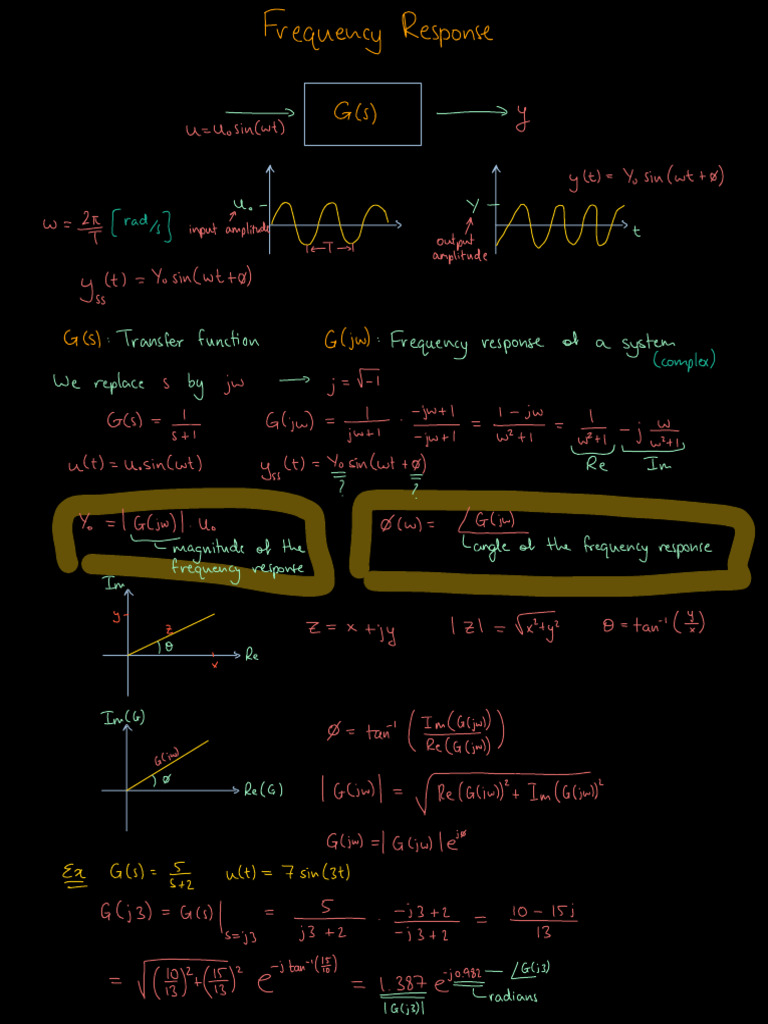 Frequency Response
u=u₀sin(ωt) G(s) y
ω = 2π/T [rad/s] u₀ input amplitude T
Y output amplitude t y(t) = Y₀ sin(ωt+ø)
y_ss(t) = Y₀ sin(ωt+ø)
G(s): Transfer function G(jω): Frequency response of a system
(complex)
We replace s by jω → j = √-1
G(s) = 1/(s+1) G(jω) = 1/(jω+1) · (-jω+1)/(-jω+1) = (1-jω)/(ω²+1) = 1/(ω²+1) - j ω/(ω²+1)
Re Im
u(t) = u₀sin(ωt) y_ss(t) = Y₀ sin(ωt+ø)
? ?
Y₀ = |G(jω)| · u₀ ø(ω) = ∠G(jω)
magnitude of the frequency response
angle of the frequency response
Im y z θ x Re
z = x + jy |z| = √(x²+y²) θ = tan⁻¹(y/x)
Im(G) G(jω) ø Re(G)
ø = tan⁻¹(Im(G(jω))/Re(G(jω)))
|G(jω)| = √(Re(G(jω))² + Im(G(jω))²)
G(jω) = |G(jω)| e^jø
Ex G(s) = 5/(s+2) u(t) = 7 sin(3t)
G(j3) = G(s)|s=j3 = 5/(j3+2) · (-j3+2)/(-j3+2) = (10-15j)/13
= √((10/13)²+(15/13)²) e^(-j tan⁻¹(15/10)) = 1.387 e^(-j0.982) ∠G(j3)
|G(j3)| radians